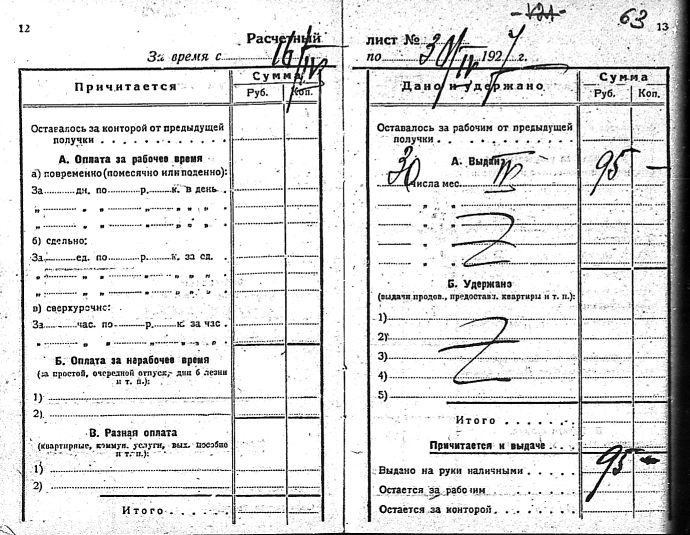 12
Расчетный
За время с 16/IV
Причитается
Сумма
Руб. Коп.
Оставалось за конторой от предыдущей
получки
А. Оплата за рабочее время
а) повременно (помесячно или поденно):
За ... дн. по ... р. ... к. в день
„ ... „ „ ... „ ... „ „ „
„ ... „ „ ... „ ... „ „ „
б) сдельно:
За ... ед. по ... р. ... к. за ед.
„ ... „ „ ... „ ... „ „ „
„ ... „ „ ... „ ... „ „ „
в) сверхурочно:
За ... час. по ... р. ... к. за час
„ ... „ „ ... „ ... „ „ „
Б. Оплата за нерабочее время
(за простой, очередной отпуск, дни болезни
и т. п.):
1)
2)
В. Разная оплата
(квартирные, коммун. услуги, вых. пособие
и т. п.):
1)
2)
Итого
63
13
лист №
по 30/IV 1927 г.
Дано и удержано
Сумма
Руб. Коп.
Оставалось за рабочим от предыдущей
получки
А. Выдано
30 числа мес. IV 95 —
„ „
„ „
„ „
Б. Удержано
(выдачи продов., предоставл. квартиры и т. п.):
1)
2)
3)
4)
5)
Итого
Причитается к выдаче
Выдано на руки наличными 95 —
Остается за рабочим
Остается за конторой